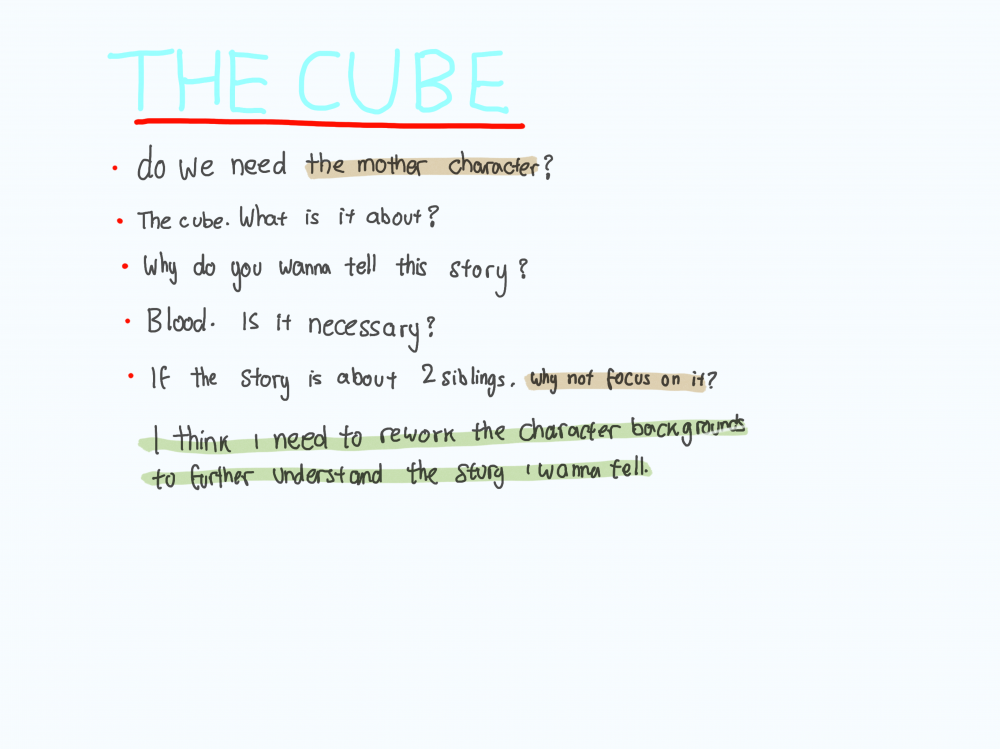 THE CUBE
• do we need the mother character?
• The cube. What is it about?
• Why do you wanna tell this story?
• Blood. Is it necessary?
• If the story is about 2 siblings. why not focus on it?
I think I need to rework the character backgrounds
to further understand the story I wanna tell.